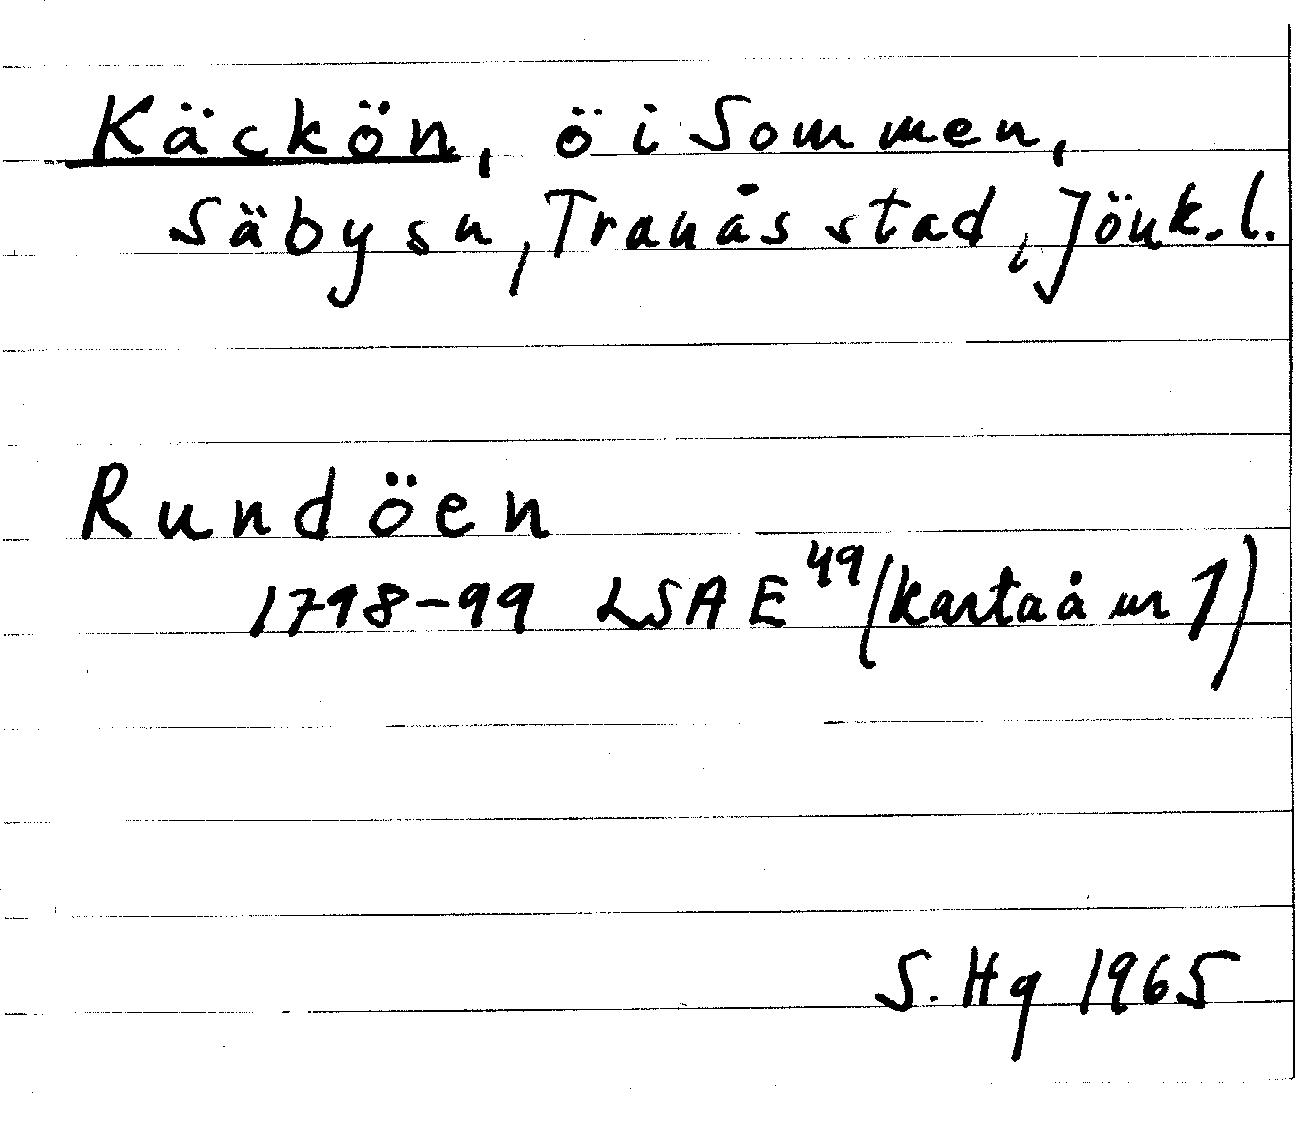 Käckön, ö i Sommen,
Säby sn, Tranås stad, Jönk.l.
Rundöen
1798-99 LSA E49 (karta å nr 1)
S. Hg 1965